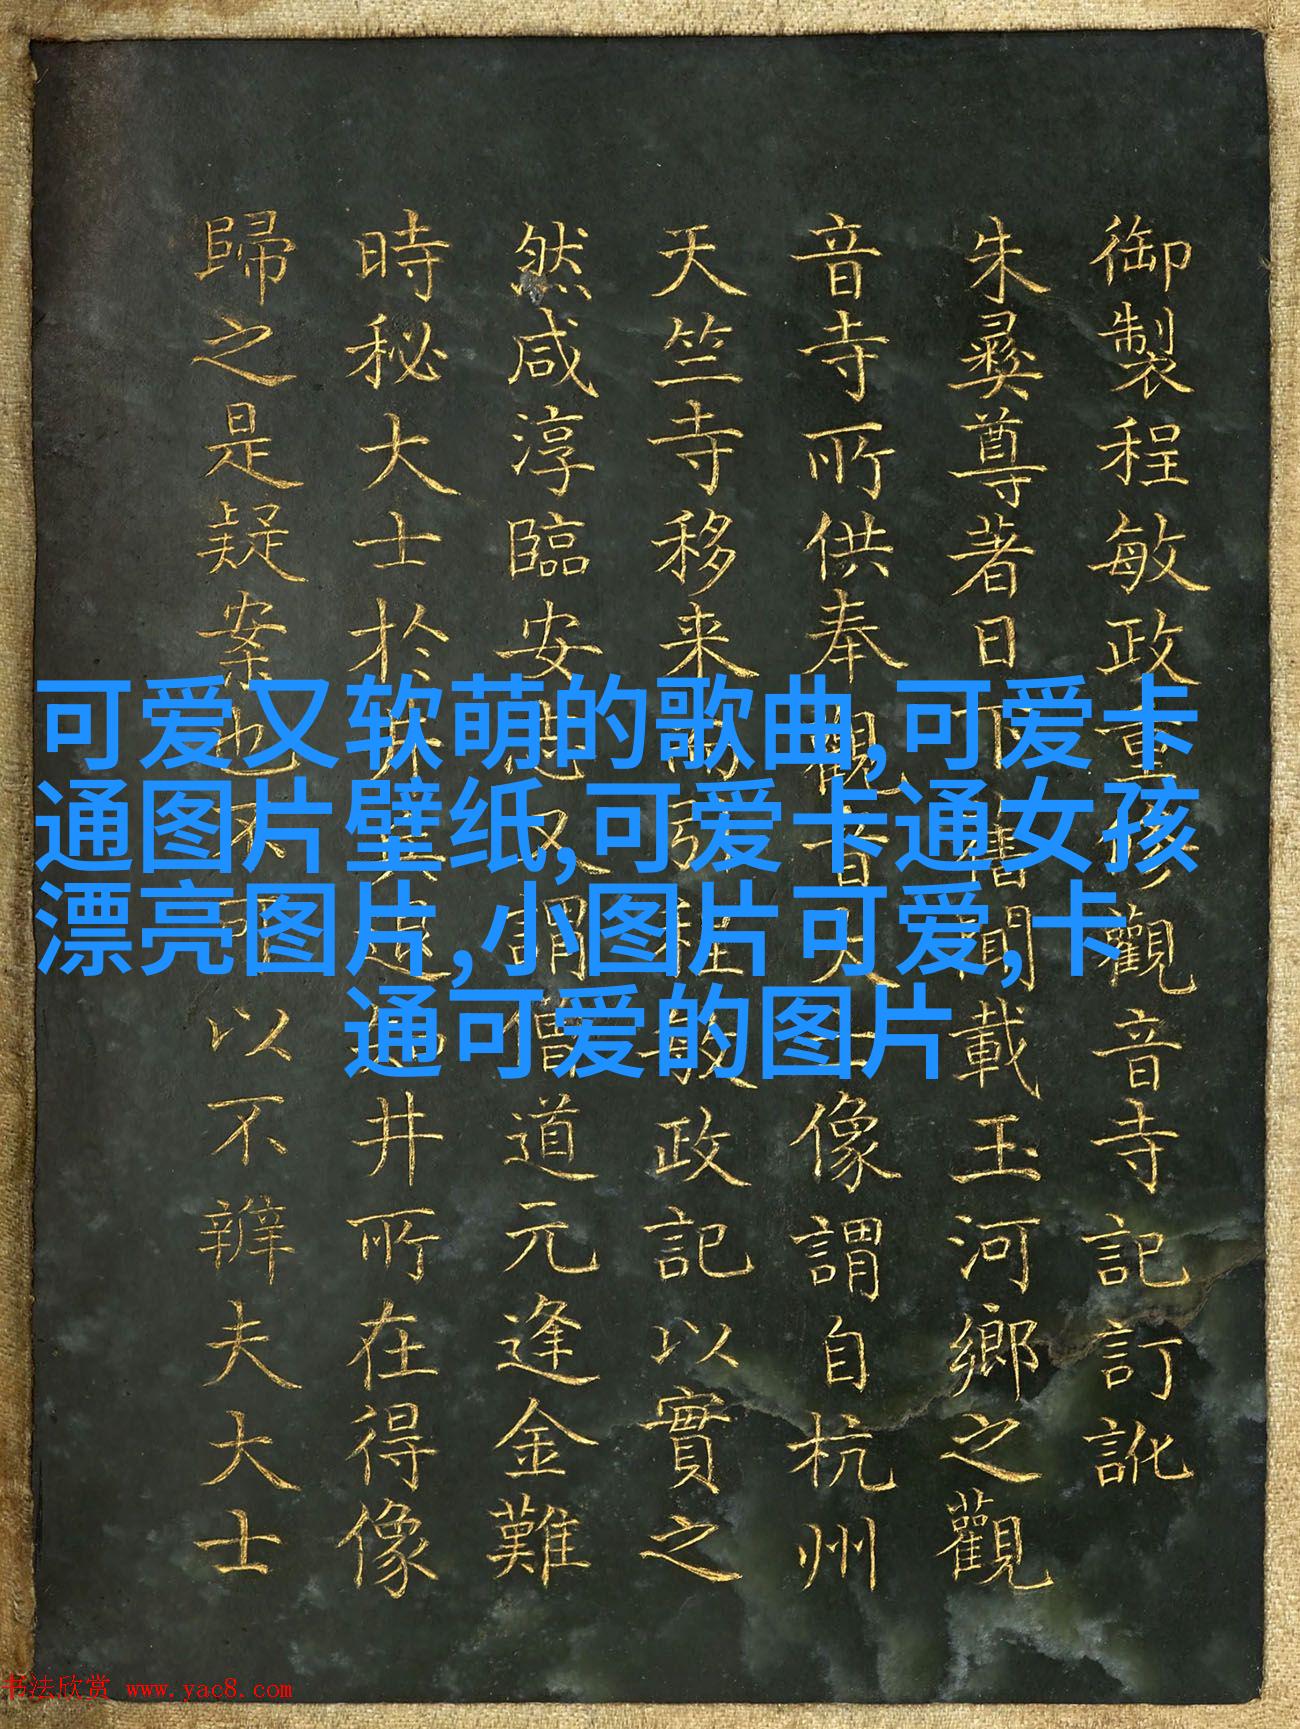 御製程敏政重修觀音寺記訂訛
朱彝尊著日下舊聞載玉河鄉之觀
音寺所供奉觀音大士像謂自杭州
天竺寺移来而引程敏政記以實之
然咸淳臨安志又謂僧道元逢金難
時秘大士於井其後井所在得像
歸之是疑案也不可以不辨夫大士
可爱又软萌的歌曲,可爱卡
通图片壁纸,可爱卡通女孩
漂亮图片,小图片可爱,卡
通可爱的图片
书法欣赏 www.yac8.com